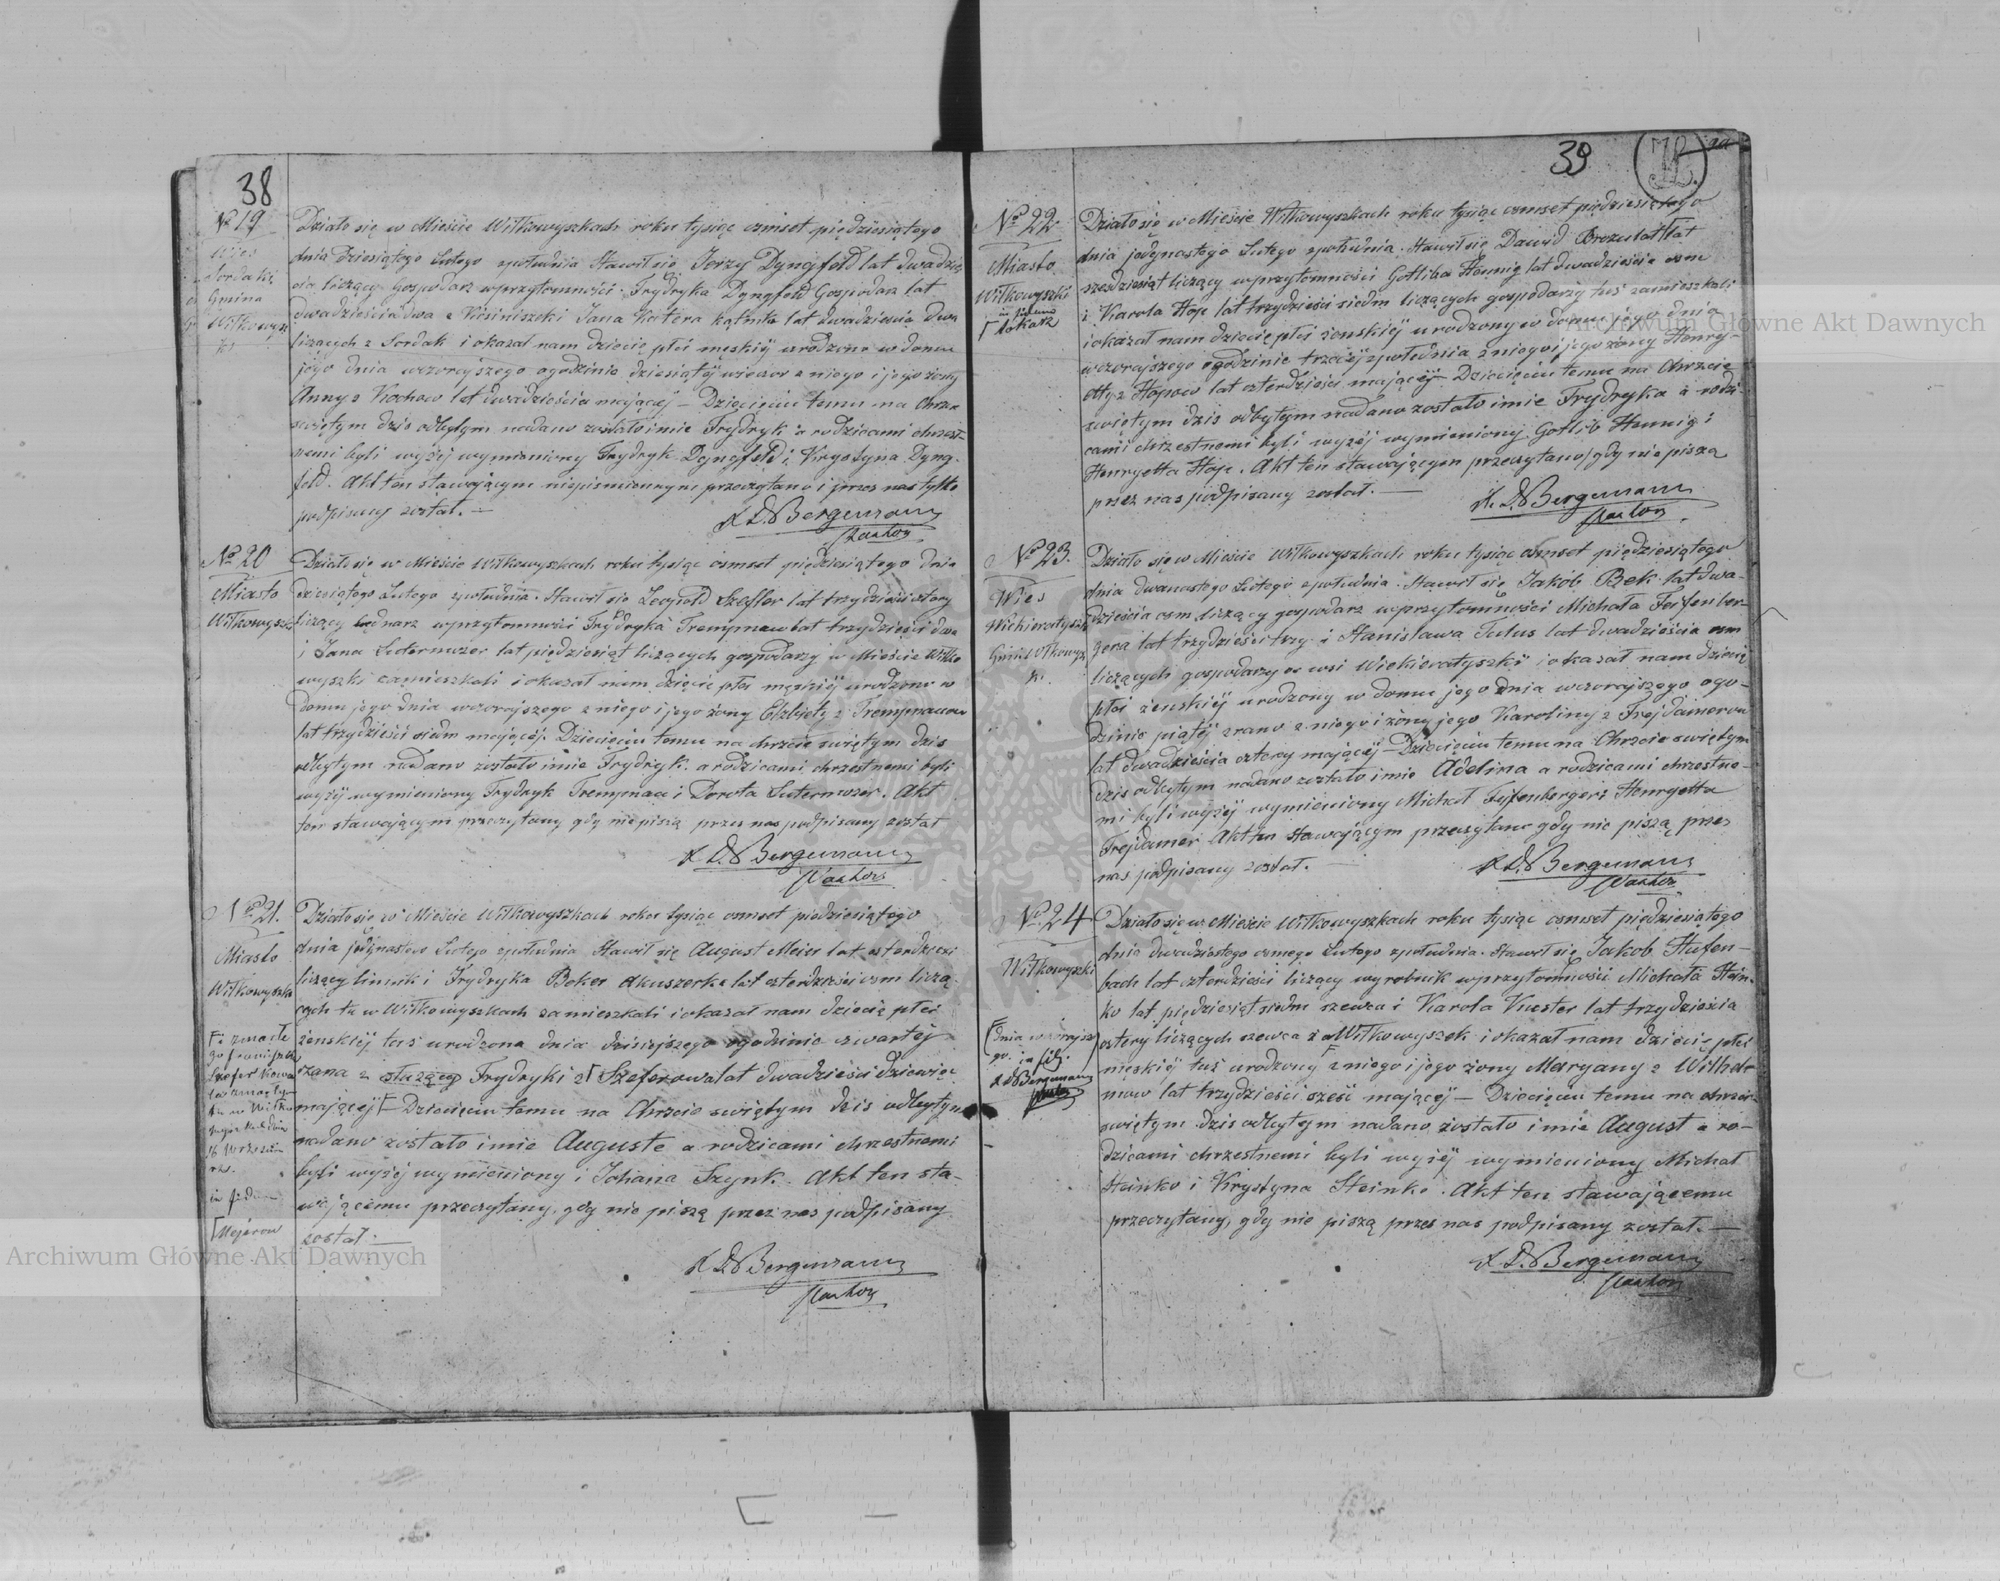 38
No 19
Wieś
Sordaki
Gmina
Wiłkowysz
ki
Działo się w Mieście Wiłkowyszkach roku tysiąc ośmset piędziesiątego
dnia dziesiątego Lutego zpołudnia Stawił się Jerzy Dyngfeld lat dwadzieś
cia liczący Gospodarz wprzytomności Frydryka Dyngfeld Gospodarz lat
dwadzieścia dwa z Jana Kątnika lat dwadzieścia dwa
liczących z Sordak i okazał nam dziecię płci męskiéj urodzone w domu
jego dnia wczorajszego ogodzinie dziesiątéj wieczor z niego i jego żony
Anny z Kochow lat dwadzieścia mającéj — Dziecięciu temu na Chrzcie
świętym dziś odbytym nadano zostało imie Frydryk a rodzicami chrzest-
nemi byli wyżéj wymieniony Frydryk Dyngfeld i Krystyna Dyng-
feld. Akt ten stawającym niepismiennym przeczytano i przez nas tylko
podpisany został. —
Bergemann
Pastor
No 20
Miasto
Wiłkowyszki
Działo się w Mieście Wiłkowyszkach roku tysiąc ośmset piędziesiątego dnia
dziesiątego Lutego zpołudnia. Stawił się Leopold Szefler lat trzydzieści cztery
liczący bednarz wprzytomności Frydryka Trempnau lat trzydzieści dwa
i Jana Luternozer lat pięćdziesiąt liczących gospodarzy w Mieście Wiłko
wyszki zamieszkali i okazał nam dziecię płci męskiéj urodzone w
domu jego dnia wczorajszego z niego i jego żony Elżbiety z Trempnauow
lat trzydzieści siedm mającéj. Dziecięciu temu na chrzcie świętym dziś
odbytym nadano zostało imie Frydryk. a rodzicami chrzestnemi byli
wyżéj wymieniony Frydryk Trempnau i Dorota Luternozer. Akt
ten stawającym przeczytany gdy nie piszą przez nas podpisany został
Bergemann
Pastor
No 21.
Miasto
Wiłkowyszki
Działo się w Mieście Wiłkowyszkach roku tysiąc ośmset piędziesiątego
dnia jedynastego Lutego zpołudnia Stawił się August Meier lat czterdzieści
liczący i Frydryka Beker Akuszerka lat czterdzieści ośm liczą-
cych tu w Wiłkowyszkach zamieszkali i okazał nam dziecię płci
żeńskiéj tuż urodzona dnia dzisiejszego ogodzinie czwartéj
zrana z służącej Frydryki z Szeferow lat dwadzieścia dziewięć
mającéj — Dziecięciu temu na Chrzcie świętym dziś odbytym
nadano zostało imie Auguste a rodzicami chrzestnemi
byli wyżéj wymieniony i Johana Szynk. Akt ten sta-
wającemu przeczytany, gdy nie piszą przez nas podpisany
został. —
Mejerow
Bergemann
Pastor
39
No 22
Miasto
Wiłkowyszki
lokarz
Działo się w Mieście Wiłkowyszkach roku tysiąc ośmset piędziesiątego
dnia jedynastego Lutego zpołudnia. Stawił się Dawid Brozulat lat
sześdziesiąt liczący wprzytomności Gotliba Hennig lat dwadzieścia ośm
i Karola Hoje lat trzydzieści siedm liczących gospodarzy tuż zamieszkali
i okazał nam dziecię płci żenskiéj urodzony w domu jego dnia
wczorajszego ogodzinie trzeciéj zpołudnia z niego i jego żony Henry-
etty z Hojow lat czterdzieści mającéj — Dziecięciu temu na Chrzcie
świętym dziś odbytym nadano zostało imie Frydryka a rodzi-
cami chrzestnemi byli wyżéj wymieniony Gotlib Hennig i
Henryetta Hoje. Akt ten stawającym przeczytano, gdy nie piszą
przez nas podpisany został. —
Bergemann
Pastor
No 23.
Wieś
Wiekieratyszki
Gmina Wiłkowysz
ki.
Działo się w Mieście Wiłkowyszkach roku tysiąc ośmset pięćdziesiątego
dnia dwunastego Lutego zpołudnia. Stawił się Jakób Bek lat dwa-
dzieścia ośm liczący gospodarz wprzytomności Michała Feifenber-
gera lat trzydzieści trzy i Stanisława Tulus lat dwadzieścia ośm
liczących gospodarzy ze wsi Wiekieratyszki i okazał nam dziecię
płci żenskiéj urodzony w domu jego dnia wczorajszego ogo-
dzinie piątéj zrano z niego i żony jego Karoliny z Trejdamerow
lat dwadzieścia cztery mającéj — Dziecięciu temu na Chrzcie świętym
dziś odbytym nadano zostało imie Adelina a rodzicami chrzestne-
mi byli wyżéj wymieniony Michał Fejfenberger i Henryetta
Trejdamer Akt ten stawającym przeczytano gdy nie piszą przez
nas podpisany został. —
Bergemann
Pastor
No 24
Wiłkowyszki
Działo się w Mieście Wiłkowyszkach roku tysiąc ośmset pięćdziesiątego
dnia dwudziestego osmego Lutego zpołudnia. Stawił się Jakob Hufen-
bach lat czterdzieści liczący wyrobnik wprzytomności Michała Stein-
ke lat pięćdziesiąt siedm szewca i Karola Kuester lat trzydzieścia
cztery liczących szewca z Wiłkowyszek i okazał nam dziecię płci
męskiéj tuż urodzony z niego i jego żony Maryany z Wilhel-
mow lat trzydzieści sześć mającéj — Dziecięciu temu na chrzcie
świętym dziś odbytym nadano zostało imie August a ro-
dzicami chrzestnemi byli wyżéj wymieniony Michał
Steinke i Krystyna Steinke. Akt ten stawającemu
przeczytany, gdy nie piszą przez nas podpisany został. —
Bergemann
Pastor
Archiwum Główne Akt Dawnych
Archiwum Główne Akt Dawnych